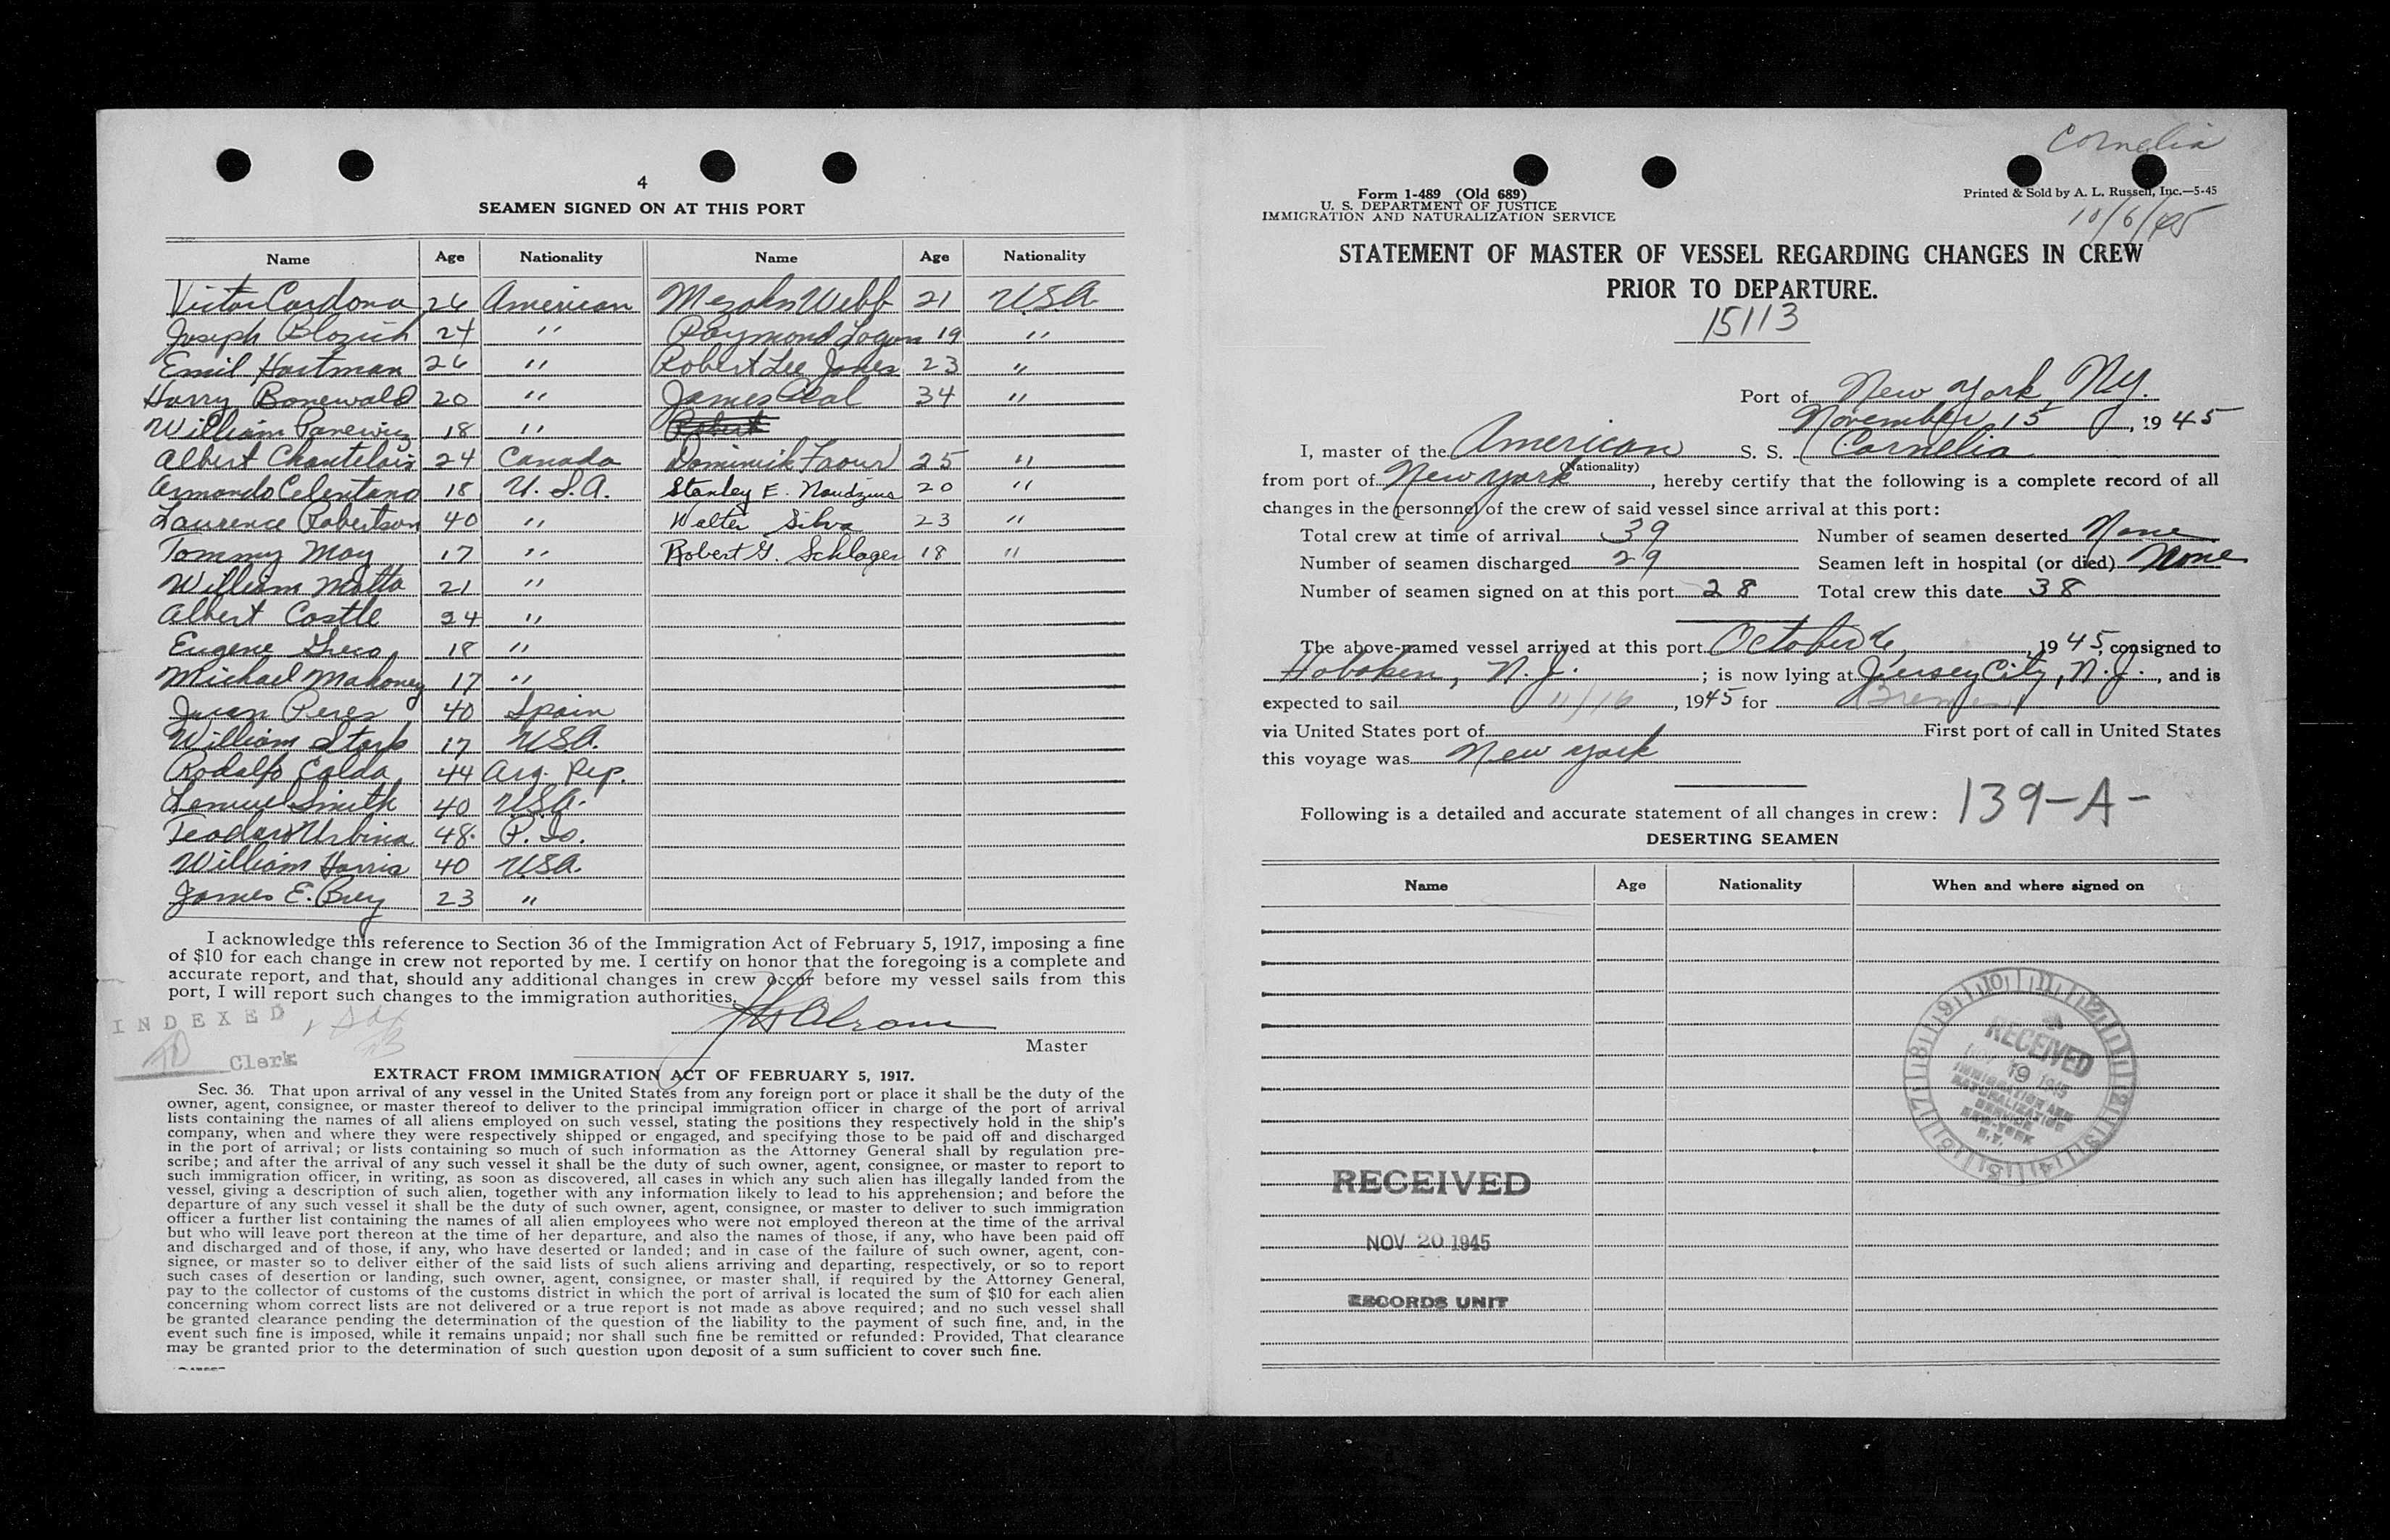 4
SEAMEN SIGNED ON AT THIS PORT
Name Age Nationality Name Age Nationality
Victor Cardona 26 American Mezohn Webb 21 U.S.A.
Joseph Blozich 24 " Raymond Logan 19 "
Emil Hartman 26 " Robert Lee Jones 23 "
Harry Bonewald 20 " James 34 "
William 18 " Robert
Albert Chantelois 24 Canada Dominik 25 "
Armando Celentano 18 U.S.A. Stanley E. 20 "
Laurence Robertson 40 " Walter Silva 23 "
Tommy May 17 " Robert G. Schlager 18 "
William Motta 21 "
Albert Costle 24 "
Eugene 18 "
Michael Mahoney 17 "
Juan Perez 40 Spain
William Stark 17 USA.
Rodalfo 44 Arg. Rep.
Lemuel Smith 40 U.S.A.
Teodoro Urbina 48. P.
William Harris 40 USA.
James E. 23 "
I acknowledge this reference to Section 36 of the Immigration Act of February 5, 1917, imposing a fine
of $10 for each change in crew not reported by me. I certify on honor that the foregoing is a complete and
accurate report, and that, should any additional changes in crew occur before my vessel sails from this
port, I will report such changes to the immigration authorities.
Master
INDEXED
Clerk
EXTRACT FROM IMMIGRATION ACT OF FEBRUARY 5, 1917.
Sec. 36. That upon arrival of any vessel in the United States from any foreign port or place it shall be the duty of the
owner, agent, consignee, or master thereof to deliver to the principal immigration officer in charge of the port of arrival
lists containing the names of all aliens employed on such vessel, stating the positions they respectively hold in the ship's
company, when and where they were respectively shipped or engaged, and specifying those to be paid off and discharged
in the port of arrival; or lists containing so much of such information as the Attorney General shall by regulation pre-
scribe; and after the arrival of any such vessel it shall be the duty of such owner, agent, consignee, or master to report to
such immigration officer, in writing, as soon as discovered, all cases in which any such alien has illegally landed from the
vessel, giving a description of such alien, together with any information likely to lead to his apprehension; and before the
departure of any such vessel it shall be the duty of such owner, agent, consignee, or master to deliver to such immigration
officer a further list containing the names of all alien employees who were not employed thereon at the time of the arrival
but who will leave port thereon at the time of her departure, and also the names of those, if any, who have been paid off
and discharged and of those, if any, who have deserted or landed; and in case of the failure of such owner, agent, con-
signee, or master so to deliver either of the said lists of such aliens arriving and departing, respectively, or so to report
such cases of desertion or landing, such owner, agent, consignee, or master shall, if required by the Attorney General,
pay to the collector of customs of the customs district in which the port of arrival is located the sum of $10 for each alien
concerning whom correct lists are not delivered or a true report is not made as above required; and no such vessel shall
be granted clearance pending the determination of the question of the liability to the payment of such fine, and, in the
event such fine is imposed, while it remains unpaid; nor shall such fine be remitted or refunded: Provided, That clearance
may be granted prior to the determination of such question upon deposit of a sum sufficient to cover such fine.
Cornelia
Form 1-489 (Old 689)
U. S. DEPARTMENT OF JUSTICE
IMMIGRATION AND NATURALIZATION SERVICE
Printed & Sold by A. L. Russell, Inc.—5-45
10/6/45
STATEMENT OF MASTER OF VESSEL REGARDING CHANGES IN CREW
PRIOR TO DEPARTURE.
15113
Port of New York, NY.
November 15, 1945
I, master of the American S. S. Cornelia
(Nationality)
from port of New York, hereby certify that the following is a complete record of all
changes in the personnel of the crew of said vessel since arrival at this port:
Total crew at time of arrival 39 Number of seamen deserted None
Number of seamen discharged 29 Seamen left in hospital (or died) None
Number of seamen signed on at this port 28 Total crew this date 38
The above-named vessel arrived at this port October 6, 1945, consigned to
Hoboken, N.J. ; is now lying at Jersey City, N.J., and is
expected to sail 11/16, 1945 for Bremen
via United States port of First port of call in United States
this voyage was New York
Following is a detailed and accurate statement of all changes in crew: 139-A-
DESERTING SEAMEN
Name Age Nationality When and where signed on
RECEIVED
19 1945
IMMIGRATION AND
NATURALIZATION
SERVICE
NEW YORK
N.Y.
RECEIVED
NOV 20 1945
RECORDS UNIT